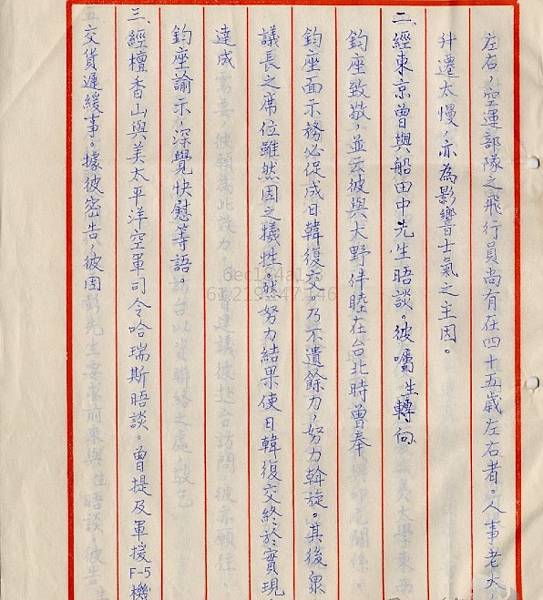 左右，空運部隊之飛行員尚有在四十五歲左右者。人事老大
升遷太慢，亦為影響士氣之主因。
二、經東京曾與船田中先生晤談。彼囑生轉向
鈞座致敬，並云彼與大野伴睦在台北時曾奉
鈞座面示務必促成日韓復交。乃不遺餘力，努力斡旋。其後眾
議長之席位雖然因之犧牲。然努力結果使日韓復交終於實現
達成
鈞座諭示，深覺快慰等語。
三、經檀香山與美太平洋空軍司令哈瑞斯晤談。曾提及軍援F-5機
交貨遲緩事。據彼密告，彼因